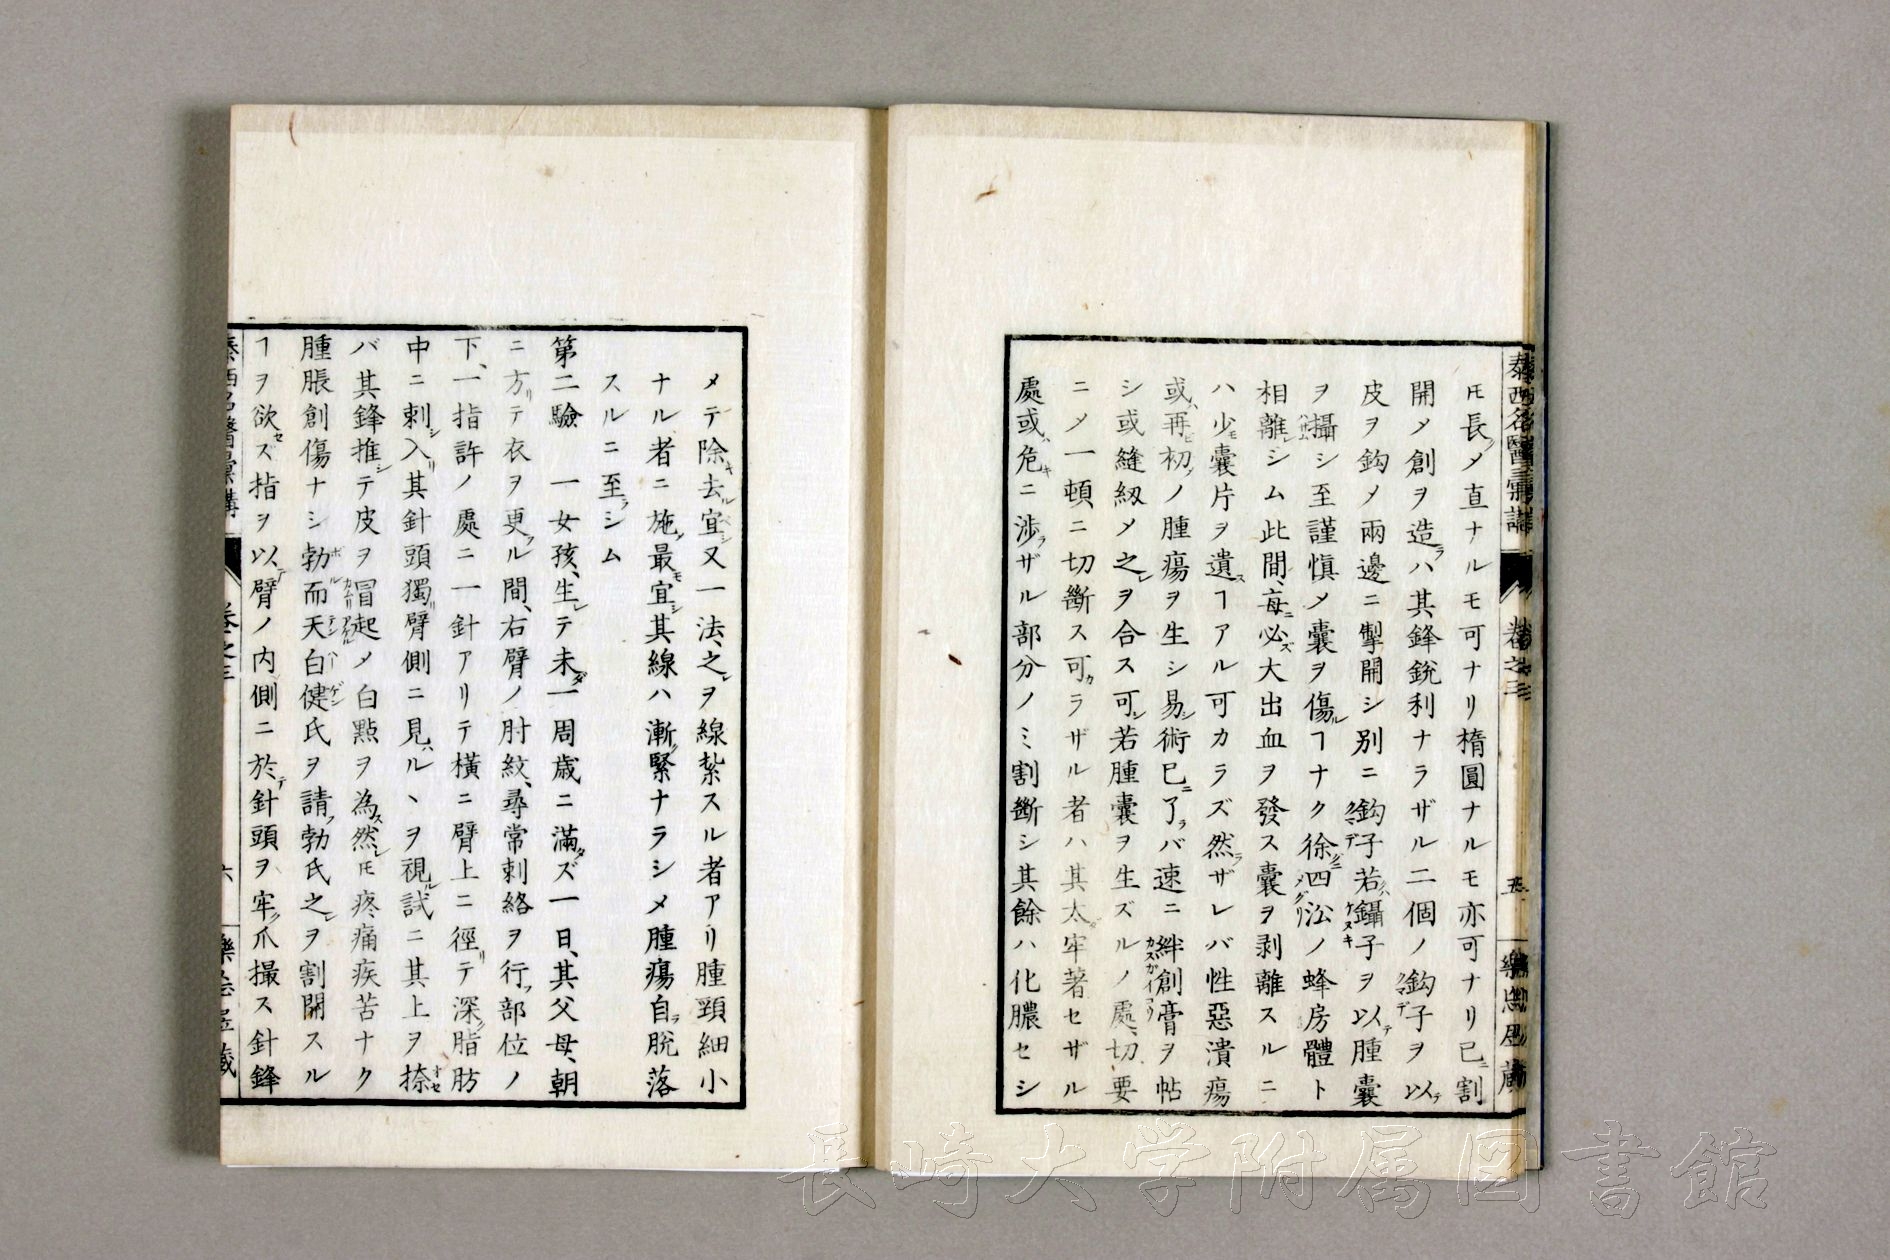 𪜈長ノ直ナルモ可ナリ楕圓ナルモ亦可ナリ已ニ割
開メ創ヲ造ラハ其鋒銳利ナラザル二個ノ鈎子ヲ以テ
皮ヲ鈎メ兩邊ニ掣開シ別ニ鈎子若ハ鑷子ヲ以テ腫囊
ヲ攝シ至謹愼メ囊ヲ傷ルヿナク徐四㳂ノ蜂房體ト
相離シム此間毎ニ必ズ大出血ヲ發ス囊ヲ剥離スルニ
ハ少モ囊片ヲ遺スヿアル可カラズ然ラザレバ性惡潰瘍
或ハ再ヒ初ノ腫瘍ヲ生シ易シ術已ニ了ラバ速ニ絆創膏ヲ帖
シ或縫綴メ之レヲ合ス可シ若腫囊ヲ生ズルノ處、切要
ニメ一頓ニ切斷ス可カラザル者ハ其太ダ牢著セザル
處或ハ危キニ涉ラザル部分ノミ割斷シ其餘ハ化膿セシ
メテ除キ去ル宜シ又一法、之レヲ線紮スル者アリ腫頸細小
ナル者ニ施メ最モ宜シ其線ハ漸ノ緊ナラシメ腫瘍自ラ脱落
スルニ至ラシム
第二驗　一女孩、生レテ未ダ一周歳ニ滿タズ一日、其父母、朝
ニ方リテ衣ヲ更フル間、右臂ノ肘紋、尋常刺絡ヲ行フ部位ノ
下、一指許ノ處ニ一針アリテ橫ニ臂上ニ徑リテ深ク脂肪
中ニ刺シ入リ其針頭獨リ臂側ニ見ハル丶ヲ視ル試ニ其上ヲ捺セ
バ其鋒推シテ皮ヲ冒起メ白點ヲ為ス然レ𪜈疼痛疾苦ナク
腫脹創傷ナシ勃而天白健氏ヲ請フ勃氏之レヲ割開スル
ヿヲ欲セズ指ヲ以テ臂ノ內側ニ於テ針頭ヲ牢ク爪撮ス針鋒
泰西名醫彙講　卷之三　五
卷之三　六
長崎大学附属図書館